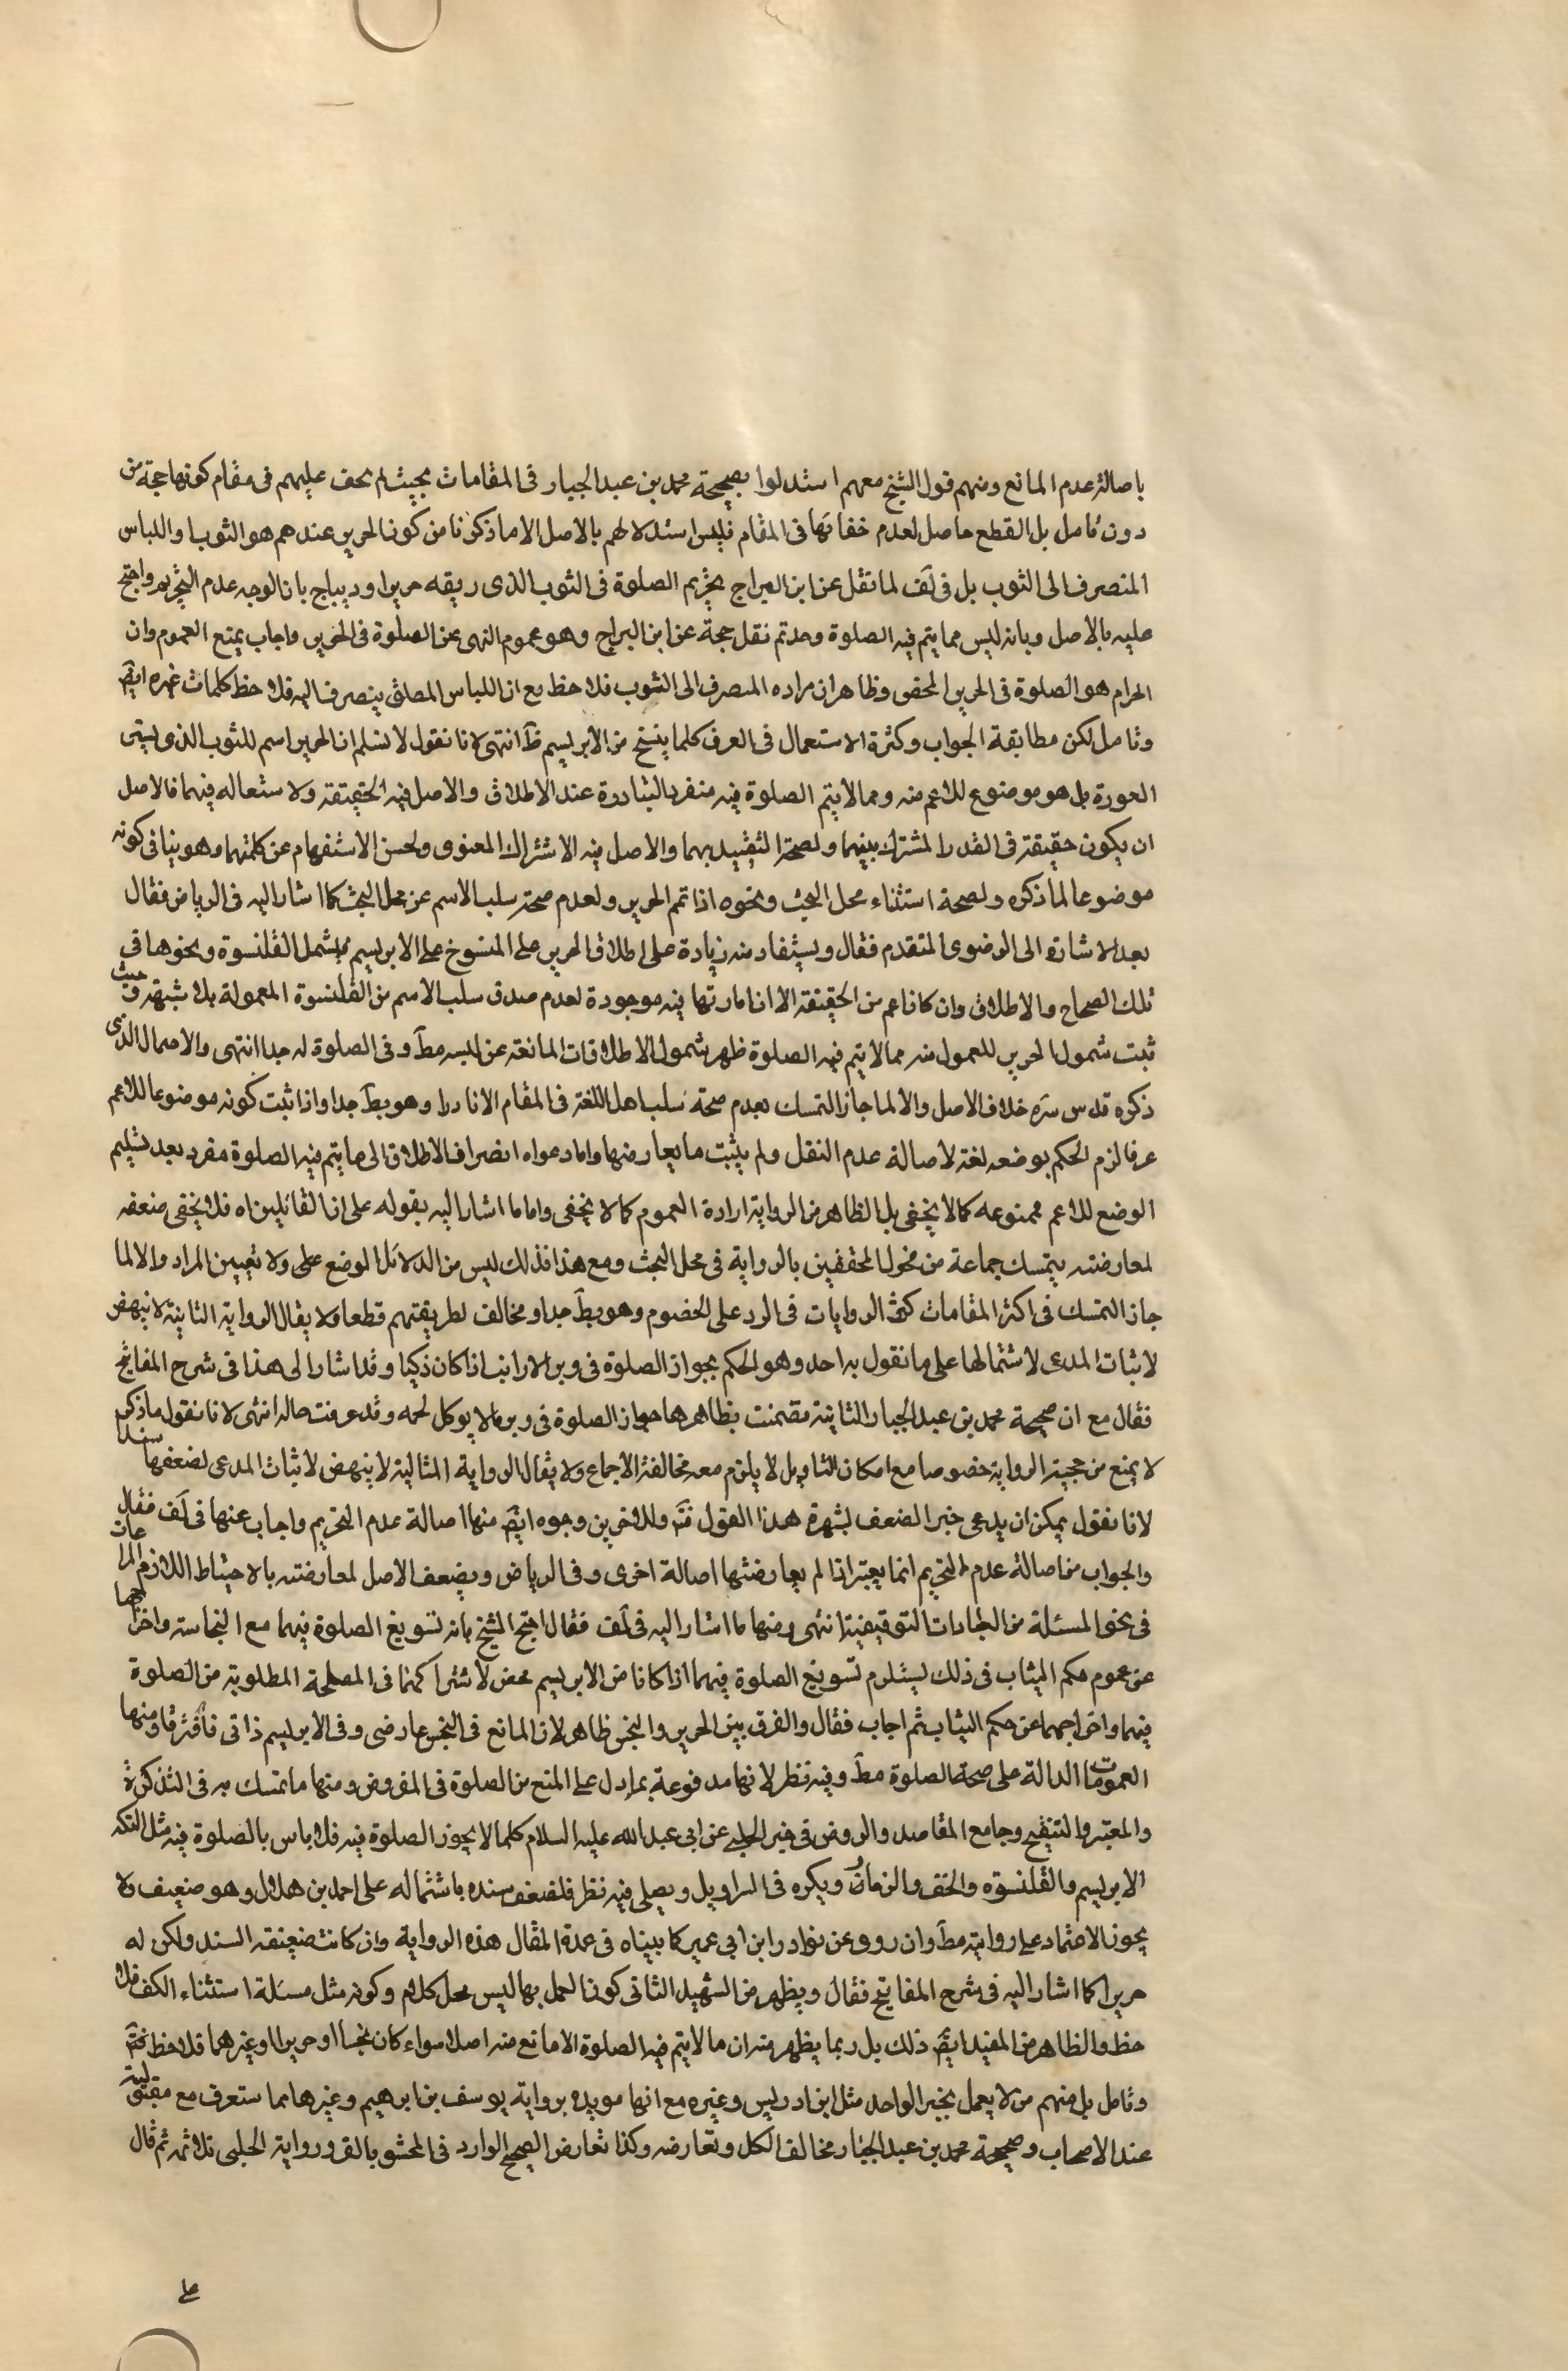 باصالة عدم المانع ومنهم قول الشيخ معهم استدلوا بصحيحة محمد بن عبد الجبار فى المقامات بحيث لم يخف عليهم فى مقام كونها حجة من
دون تامل بل القطع حاصل لعدم خفائها فى المقام فليس استدلالهم بالاصل الا ما ذكرنا من كون الحرير عندهم هو الثوب واللباس
المنصرف الى الثوب بل فى لف لما نقل عن ابن البراج بتحريم الصلوة فى الثوب الذى ريقه حرير او ديباج بان الوجه عدم التحريم واحتج
عليه بالاصل وبانه ليس مما يتم فيه الصلوة وحدتم نقل حجة عن ابن البراج وهو عموم النهى عن الصلوة فى الحرير واجاب بمنع العموم وان
الحرام هو الصلوة فى الحرير المحض وظاهر ان مراده المنصرف الى الثوب فلاحظ مع ان اللباس المطلق ينصرف اليه فلاحظ كلمات غيره ايضً
وتامل لكن مطابقة الجواب وكثرة الاستعمال فى العرف كلما ينسج من الابريسم ظَ انتهى لانا نقول لا نسلم ان الحرير اسم للثوب الذى يستر
العورة بل هو موضوع للاعم منه ومما لا يتم الصلوة فيه منفردا لتبادره عند الاطلاق والاصل فيه الحقيقة ولاستعاله فيهما فالاصل
ان يكون حقيقة فى القدر المشترك بينهما ولصحة التقييد بهما والاصل فيه الاشتراك المعنوى ولحسن الاستفهام عن كلتيهما وهو ينافى كونه
موضوعا لما ذكره ولصحة استثناء محل البحث ونحوه اذا تمم الحرير ولعدم صحة سلب الاسم عن محل البحث كما اشار اليه فى الرياض فقال
بعد الاشارة الى الرضوى المتقدم فقال ويستفاد منه زيادة على اطلاق الحرير على المنسوخ على الابريسم مما يشمل القلنسوة ونحوها فى
تلك الصحاح والاطلاق وان كان اعم من الحقيقة الا ان امارتها فيه موجودة لعدم صدق سلب الاسم من القلنسوة المعمولة بلا شبهة وحيث
ثبت شمول الحرير للمعمول منه مما لا يتم فيه الصلوة ظهر شمول الاطلاقات المانعة عن لبسه مطَ وفى الصلوة له جدا انتهى والاحتمال الذى
ذكره قدس سره خلاف الاصل والا لما جاز التمسك بعدم صحة سلب اهل اللغة فى المقام الا نادرا وهو بطَ جدا واذا ثبت كونه موضوعا للاعم
عرفا لزم الحكم بوضعه لغة لاصالة عدم النقل ولم يثبت ما يعارضها واما دعواه انصراف الاطلاق الى ما يتم فيه الصلوة مفرد بعد تسليم
الوضع للاعم فممنوعه كما لا يخفى بل الظاهر من الرواية ارادة العموم كما لا يخفى واما ما اشار اليه بقوله على ان القائلين اه فلا يخفى ضعفه
لمعارضته بتمسك جماعة من فحول المحققين بالرواية فى محل البحث ومع هذا فذلك ليس من الدلائل الوضع على ولا تعيين المراد والا لما
جاز التمسك فى اكثر المقامات كثر الروايات فى الرد على الخصوم وهو بطَ جدا ومخالف لطريقتهم قطعا ولا يقال الرواية الثانية لا ينهض
لاثبات المدعى لاشتمالها على ما نقول به احد وهو الحكم بجواز الصلوة فى وبر الارانب اذا كان ذكيا وقد اشار الى هذا فى شرح المفاتيح
فقال مع ان صحيحة محمد بن عبد الجبار الثانية مقضمنت بظاهرها جواز الصلوة فى وبر ما لا يوكل لحمه وقد عرفت حاله انتهى لانا نقول ما ذكر
لا يمنع من حجية الرواية خصوصا مع امكان التاويل لا يلزم معه مخالفة الاجماع ولا يقال الرواية المثالية لا ينهض لاثبات المدعى لضعفها سندا
لانا نقول يمكن ان يدعى خبر الضعف لشهرة هذا القول فتَ وللاخرين وجوه ايضً منها اصالة عدم التحريم واجاب عنها فى لف فقال
والجواب من اصالة عدم التحريم انما يعتبر اذا لم يعارضتها اصالة اخرى وفى الرياض ويضعف الاصل لمعارضته بالاحتياط اللازم المراعات
فى نحو المسئلة من العبادات التوقيفية انتهى ومنها ما اشار اليه فى لف فقال احتج الشيخ بانه تسويغ الصلوة فيهما مع النجاسة واخراجهما
عن عموم حكم الثياب فى ذلك يستلزم تسويغ الصلوة فيهما اذا كانا من الابريسم محض لاشتراكهما فى المصلحة المطلوبة من الصلوة
فيهما واخراجهما عن حكم الثياب ثم اجاب فقال والفرق بين الحرير والنجس ظاهر لان المانع فى النجس عارضى وفى الابريسم ذاتى فافترقا ومنها
العمومات الدالة على صحة الصلوة مطَ وفيه نظر لانها مدفوعة بما دل على المنع من الصلوة فى المفروض ومنها ما تمسك به فى التذكرة
والمعتبر والتنقيح وجامع المقاصد والروض فى خبر الحلبى عن ابى عبد الله عليه السلام كلما لا يجوز الصلوة فيه فلا باس بالصلوة فيه مثل التكه
الابريسم والقلنسوة والخف والزنار ويكره فى السراويل ويصلى فيه نظر فلضعف سنده باشتماله على احمد بن هلال وهو ضعيف ولا
يجوز الاعتماد على روايته مطَ وان روى عن نوادر ابن ابى عمير كما بيناه فى عمدة المقال هذه الرواية وان كانت ضعيفة السند ولكن له
حريرا كما اشار اليه فى شرح المفاتيح فقال ويظهر من الشهيد الثانى كون العمل بها ليس محل كلام وكونه مثل مسئلة استثناء الكف فلا
حظ والظاهر من المفيد ايضً ذلك بل ربما يظهر منه ان ما لا يتم فيه الصلوة الا مانع منه اصلا سواء كان نجسا او حريرا او غيرهما فلاحظ فتَ
وتامل بل منهم من لا يعمل بخبر الواحد مثل ابن ادريس وغيره مع انها مويده برواية يوسف بن ابرهيم وغيرها مما ستعرف مع مقبوليته
عند الاصحاب وصحيحة محمد بن عبد الجبار مخالف الكل وتعارضه وكذا تعارض الصحيح الوارد فى المحشو بالقز ورواية الحلبى ثلاثه ثم قال
على